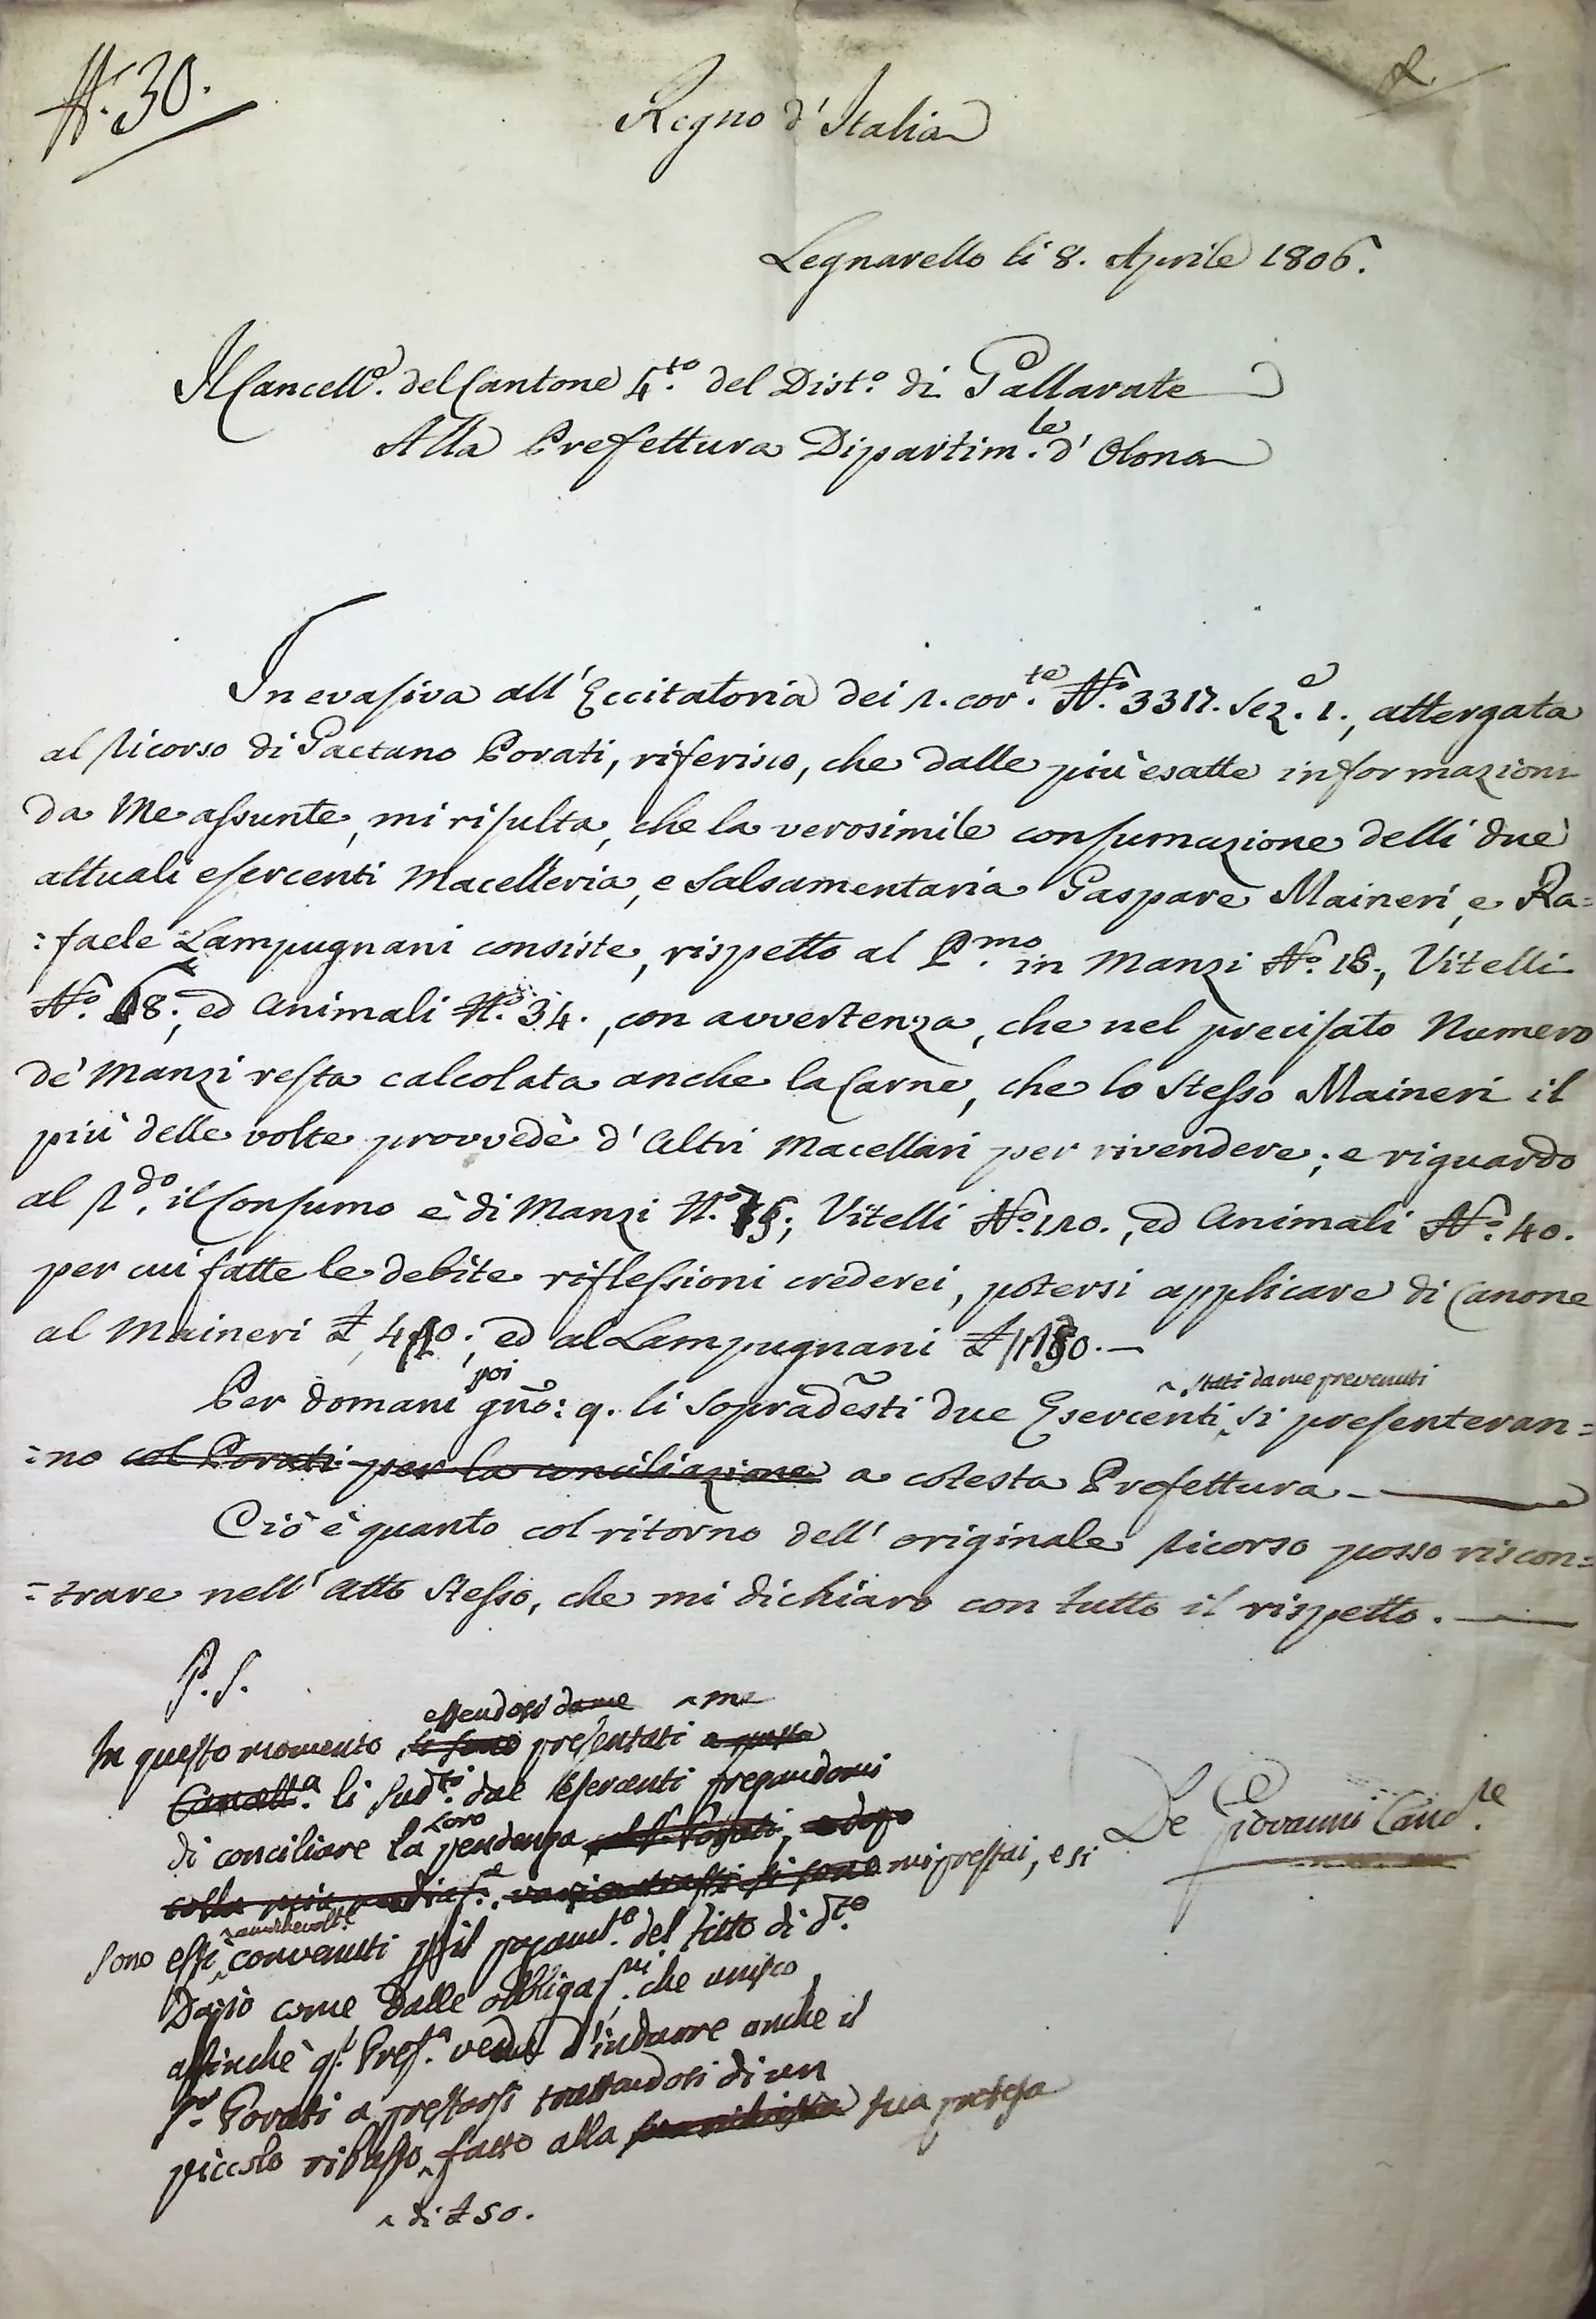 N.° 30.
Regno d'Italia
Legnarello li 8. Aprile 1806.
Il Cancell.e del Cantone 4.to del Dist.o di Gallarate
Alla Prefettura Dipartim.le d'Olona
In evasiva all'Eccitatoria dei 2. cor.te N.° 3317. Sez.e 1., attergata
al Ricorso di Gaetano Porati, riferisco, che dalle più esatte informazioni
da Me assunte, mi risulta, che la verosimile consumazione delli due
attuali esercenti Macelleria, e Salsamentaria Gaspare Maineri, e Ra=
:faele Lampugnani consiste, rispetto al P.mo in Manzi N.° 18., Vitelli
N.° 68., ed Animali N.° 34., con avvertenza, che nel precisato Numero
de' Manzi resta calcolata anche la Carne, che lo Stesso Maineri il
più delle volte provvede d'altri Macellari per rivendere; e riguardo
al 2.do, il Consumo è di Manzi N.° Vitelli N.° 120., ed Animali N.° 40.
per cui fatte le debite riflessioni crederei, potersi applicare di Canone
al Maineri £ ed al Lampugnani £
Per domani poi gino: 9. li sopradesti due Esercenti, stati da me prevenuti si presenteran=
:no col Porati per la conciliazione a cotesta Prefettura.
Ciò è quanto col ritorno dell'originale Ricorso posso riscon=
=trare nell'atto Stesso, che mi dichiaro con tutto il rispetto.
P.S.
In questo momento si sono essendosi da me presentati a questa me
Cancell.a li sud.ti due Esercenti pregandomi
di conciliare la loro pendenza col S. Porati, e dopo
colla mia si sono mi prestai, e si
sono essi amichevolt.e convenuti p il pagam.to del fitto di d.to
Dazio come dalle obbligaz.ni che unisco,
affinchè q.a Pref.a veda d'indurre anche il
S.r Porati a prestarsi trattandosi di un
piccolo ribasso di £ 50. fatto alla sua richiesta sua pretesa
De Giovanni Canc.re